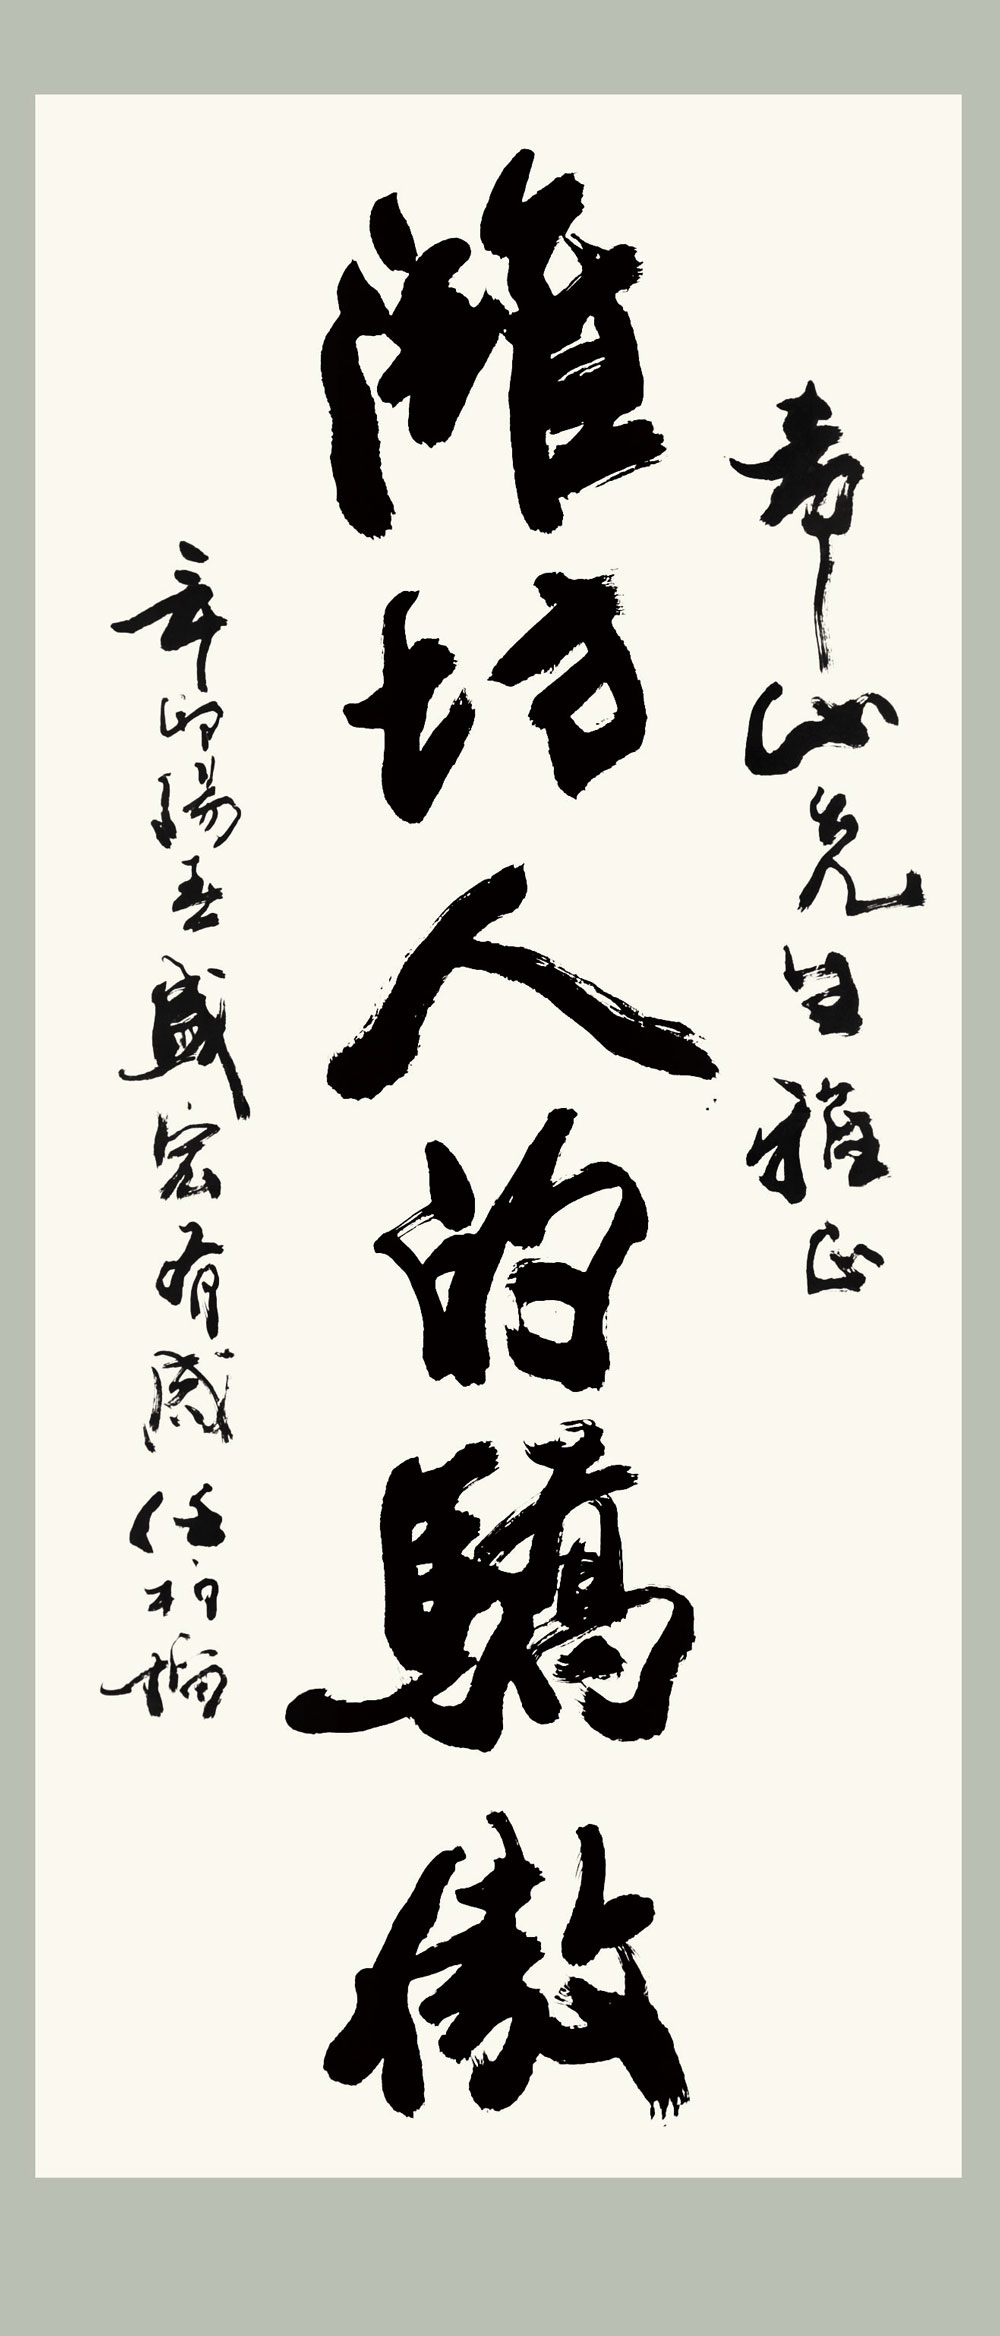 希山先生雅正
潍坊人的驕傲
辛卯陽春盛宏有感任柏榴